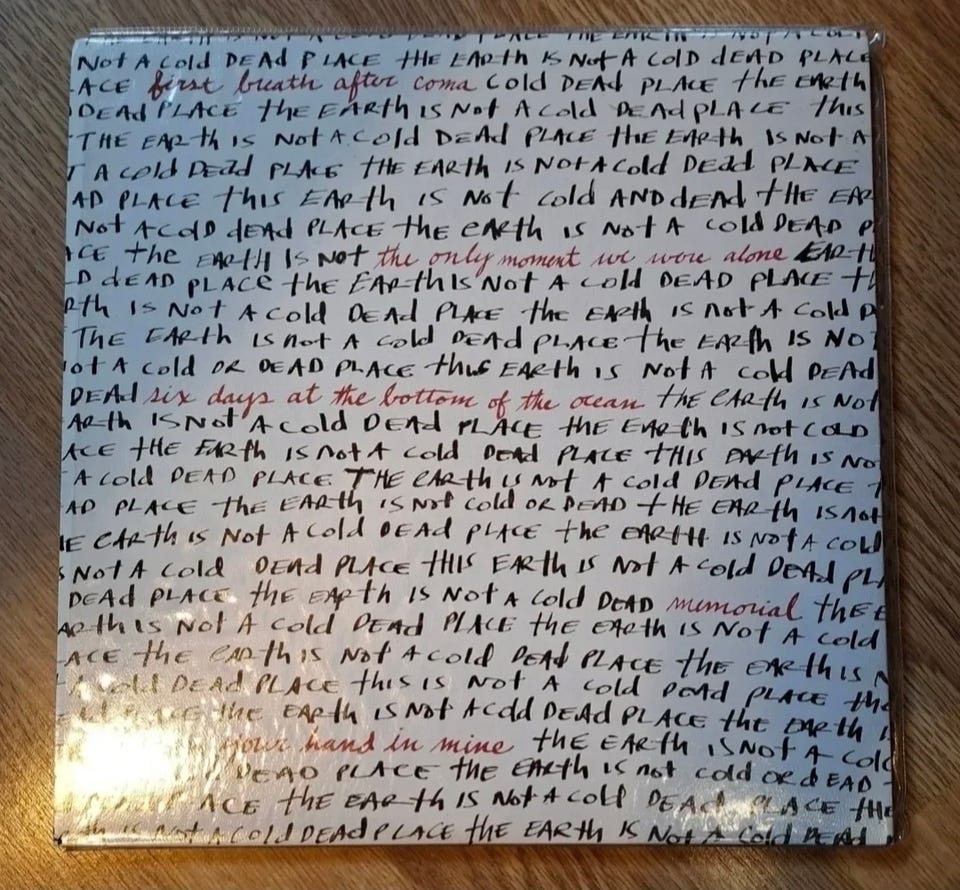 THE EARTH IS NOT A COLD DEAD PLACE THE EARTH IS NOT A COLD
NOt A Cold DEAd PLACE tHE EARth IS NOt A COLD dEAD PLACE
ACE first breath after coma Cold DEAd PLACE the EARth
DEAd PLACE the EARth IS NOt A Cold DEAd PLACE this
THE EARth IS NOt A Cold DEAd PLACE the EARth IS NOt A
T A Cold DEAd PLACE tHE EARth IS NOt A Cold DEAd PLACE
AD PLACE this EARth IS NOt Cold AND dEAd tHE EAR
NOt A COlD dEAD PLACE tHE eARth IS NOt A Cold DEAD P
ACE the EARtH IS NOt the only moment we were alone EARtH
D dEAD PLACE the EARth IS NOt A Cold DEAD PLACE tH
Rth IS NOt A Cold DEAd PLACE the EARth IS NOt A Cold D
THE EARth IS NOt A Cold DEAd PLACE the EARth IS NO
Ot A Cold OR DEAD PLACE this EARth IS NOt A Cold DEAD
DEAD six days at the bottom of the ocean tHE EARth IS NOt
ARth IS NOt A Cold DEAd PLACE tHE EARth IS NOt COLD
ACE tHE EARth IS NOt A Cold DEAd PLACE tHIS EARth IS NO
A Cold DEAD PLACE THE eARth IS NOt A Cold DEAd PLACE T
AD PLACE the EARth IS NOt Cold OR DEAD tHE EARth IS NOt
E EARth IS NOt A Cold DEAD PLACE the EARtH IS NOt A Cold
S NOt A Cold DEAd PLACE tHIS EARth IS NOt A Cold DEAd PLA
DEAd PLACE the EARth IS NOt A Cold DEAD memorial tHE E
ARth IS NOt A Cold DEAd PLACE the EARth IS NOt A Cold
ACE the EARth IS NOt A Cold DEAd PLACE the EARth IS N
A Cold DEAd PLACE this IS NOt A Cold DEAd PLACE the
PLACE the EARth IS NOt A Cold DEAd PLACE the EARth I
your hand in mine tHE EARth IS NOt A Cold
DEAD PLACE tHE EARth IS NOt Cold OR dEAD
ACE tHE EARth IS NOt A Cold DEAd PLACE tHE
th IS NOt A Cold DEAd PLACE tHE EARth IS NOt A Cold DEAd